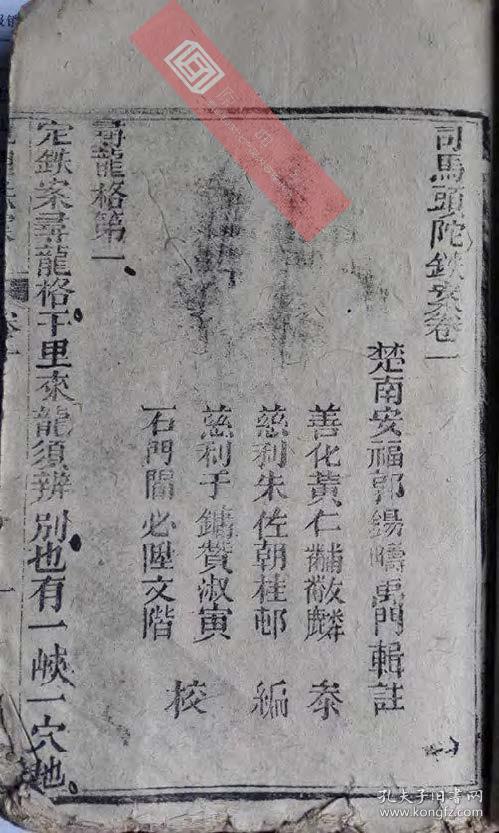 司馬頭陀鉄案卷一
楚南安福郭錫疇禹門輯註
善化黃仁黼黻麟 叅
慈利朱佐朝桂邨 編
慈利于鏞贊淑寅
石門閻必陞文階 校
尋龍格第一
定鉄案尋龍格千里來龍須辨別也有一峽一穴地
孔夫子旧书网
www.kongfz.com